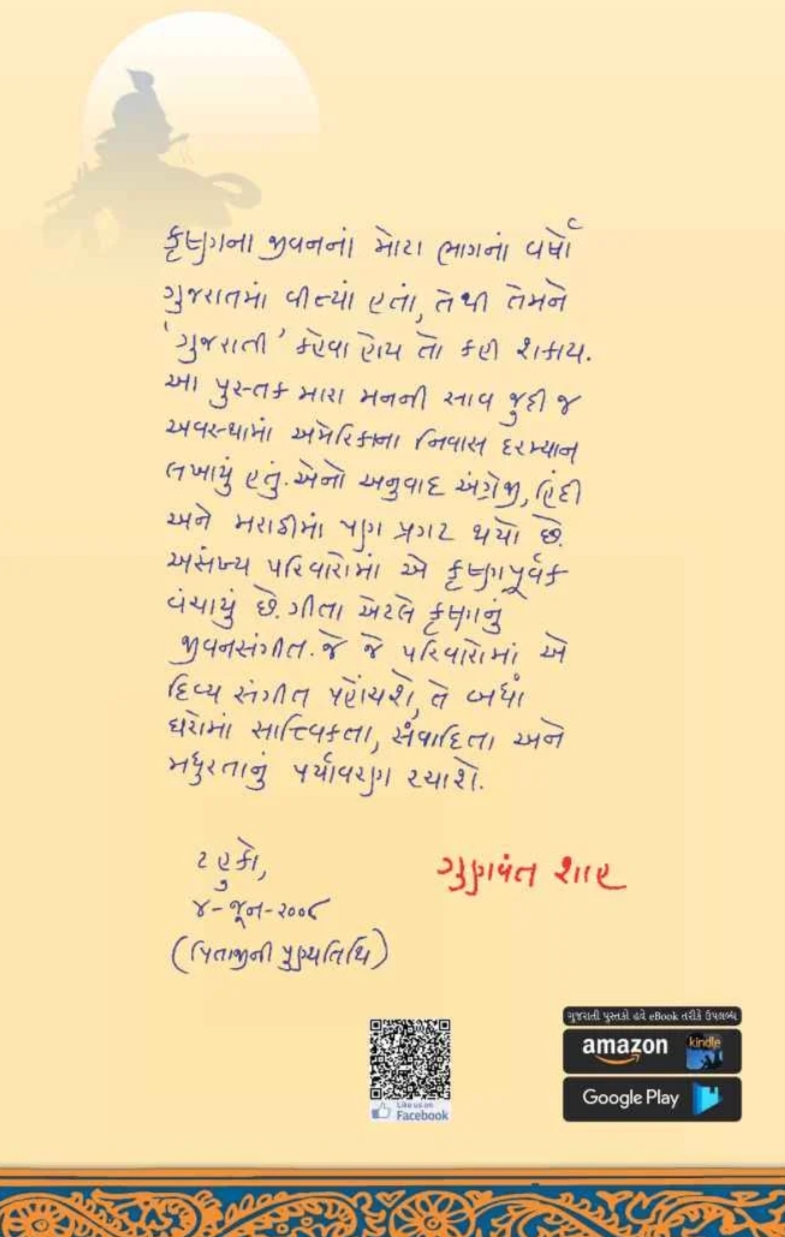 કૃષ્ણના જીવનનાં મોટા ભાગનાં વર્ષો
ગુજરાતમાં વીત્યાં હતાં, તેથી તેમને
'ગુજરાતી' કહેવા હોય તો કહી શકાય.
આ પુસ્તક મારા મનની સાવ જુદી જ
અવસ્થામાં અમેરિકાના નિવાસ દરમ્યાન
લખાયું હતું. એનો અનુવાદ અંગ્રેજી, હિંદી
અને મરાઠીમાં પણ પ્રગટ થયો છે.
અસંખ્ય પરિવારોમાં એ કૃષ્ણપૂર્વક
વંચાયું છે. ગીતા એટલે કૃષ્ણનું
જીવનસંગીત. જે જે પરિવારોમાં એ
દિવ્ય સંગીત પહોંચશે, તે બધાં
ઘરોમાં સાત્ત્વિકતા, સંવાદિતા અને
મધુરતાનું પર્યાવરણ રચાશે.
ટહુકો,
ગુણવંત શાહ
૪-જૂન-૨૦૦૮
(પિતાજીની પુણ્યતિથિ)
ગુજરાતી પુસ્તકો હવે eBook તરીકે ઉપલબ્ધ
amazon kindle
Google Play
Like us on
Facebook